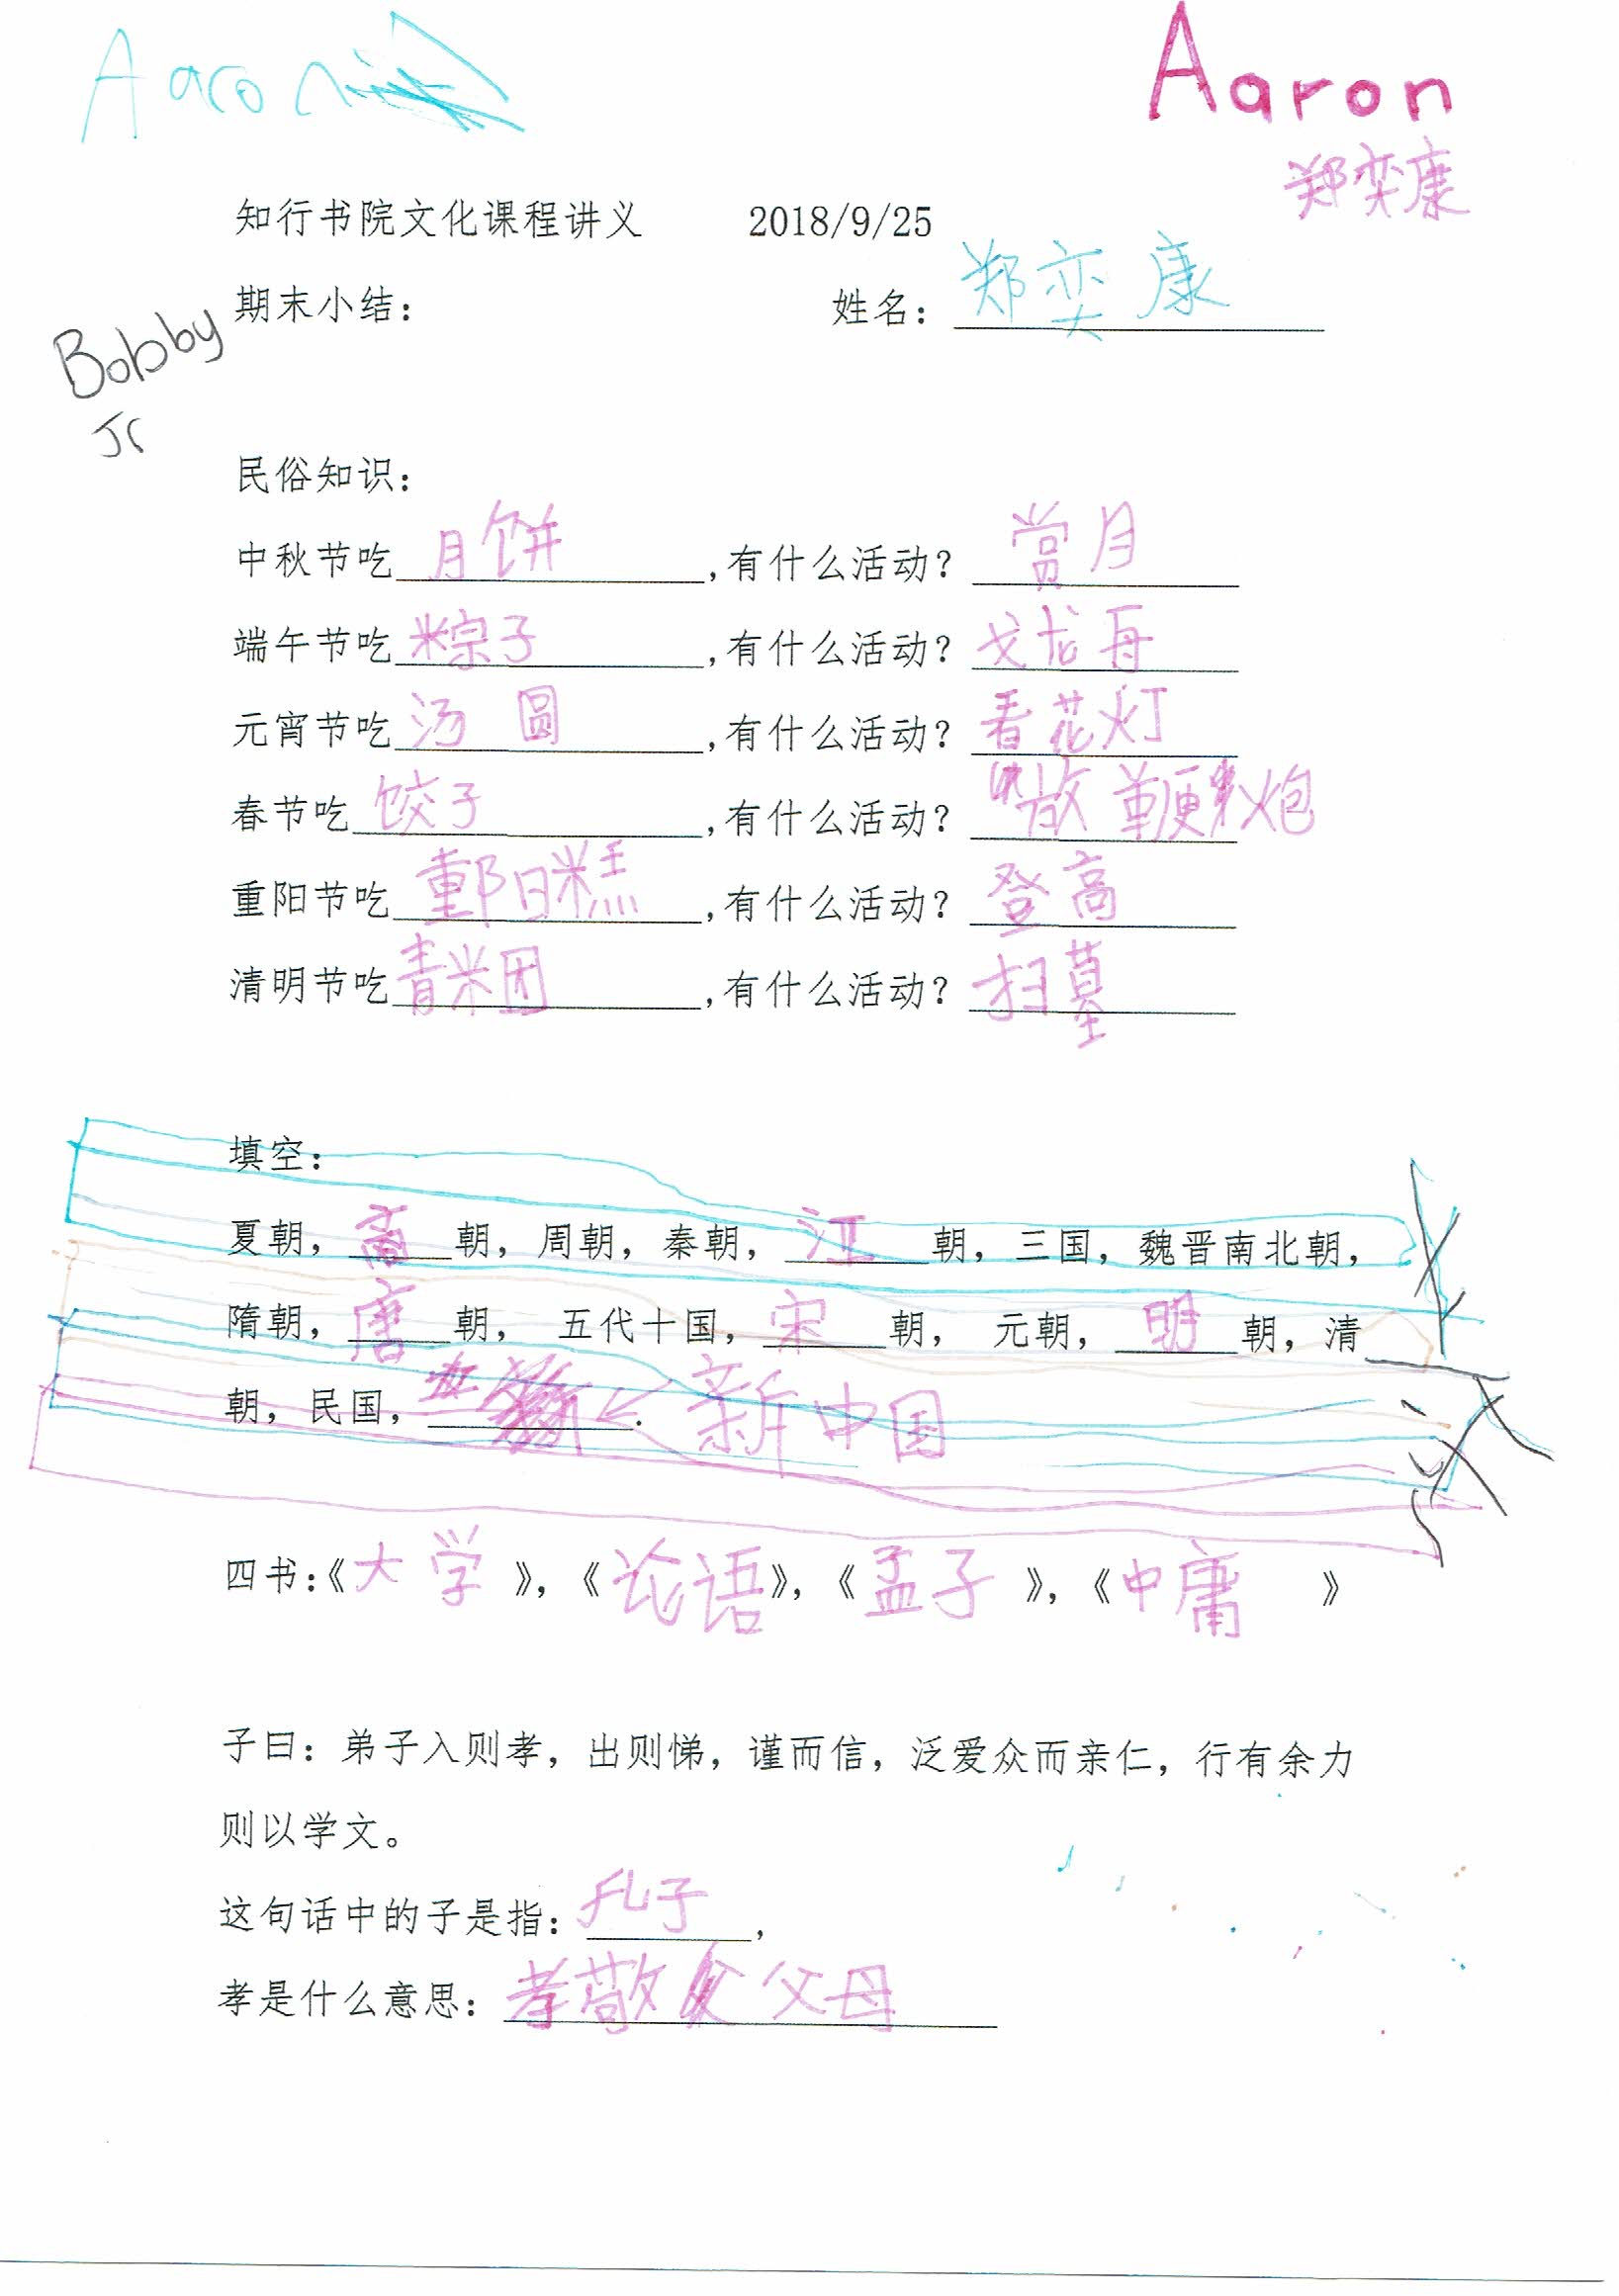 Aaron
Aaron
郑奕康
知行书院文化课程讲义 2018/9/25
期末小结： 姓名：郑奕康
Bobby
Jr
民俗知识：
中秋节吃月饼，有什么活动？赏月
端午节吃粽子，有什么活动？戈龙舟
元宵节吃汤圆，有什么活动？看花灯
春节吃饺子，有什么活动？放鞭炮
重阳节吃重阳糕，有什么活动？登高
清明节吃青米团，有什么活动？扫墓
填空：
夏朝，商朝，周朝，秦朝，江朝，三国，魏晋南北朝，
隋朝，唐朝， 五代十国，宋朝， 元朝，明朝，清
朝，民国，新中国.
四书：《大学》，《论语》，《孟子》，《中庸》
子曰：弟子入则孝，出则悌，谨而信，泛爱众而亲仁，行有余力
则以学文。
这句话中的子是指：孔子，
孝是什么意思：孝敬父母